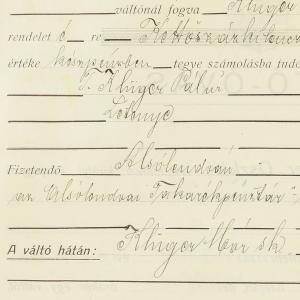 váltónál fogva Klüger
rendelet é re Kettőszázkilencz
értéke készpénzben tegye számolásba tudó
T. Klüger Pál úr
Lotenye
Fizetendő Alsólendván
az Alsólendvai Takarékpénztár
A váltó hátán: Klüger Mór sk